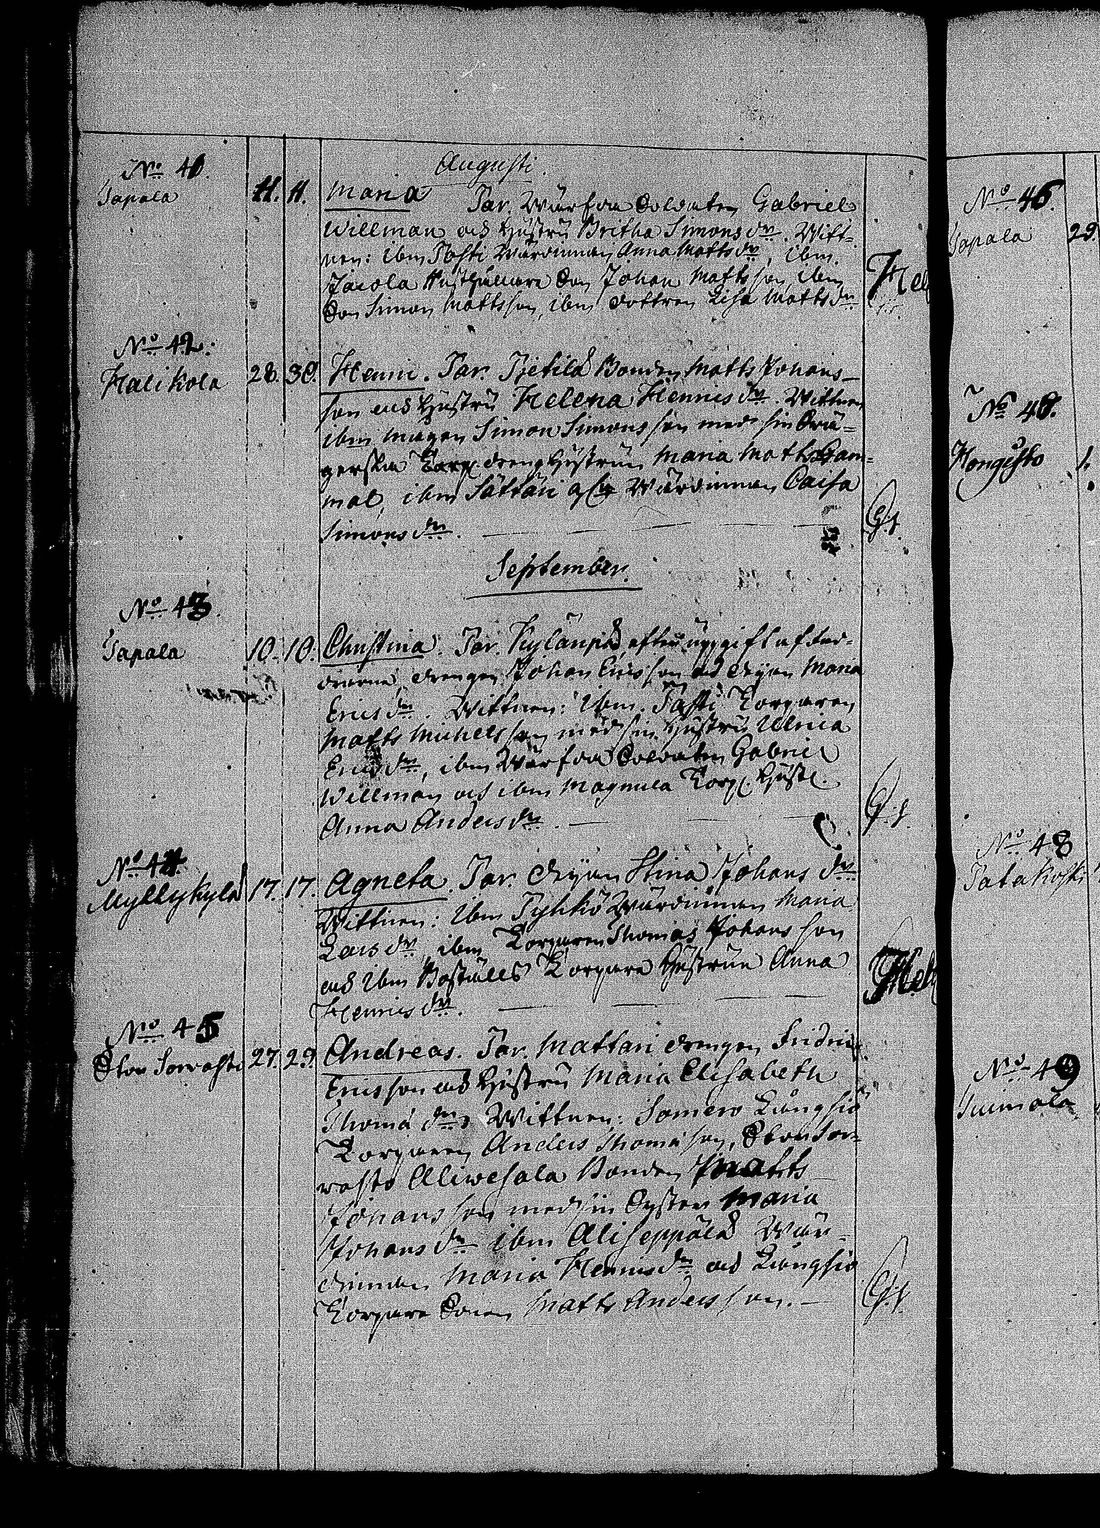 Augusti.
No 41.
Japala
11. 11.
Maria Par. Wärfda Soldaten Gabriel
Willman och Hustru Britha Simons dr. Witt-
nen: ibm Påsti Wärdinnan Anna Matts dr, ibm
Jaiola Husthållare Son Johan Matts son, ibm
Son Simon Matts son, ibm dottren Lisa Matts dr
Hel
No 42.
Halikola
28. 30.
Henric. Par. Bonden Matts Johans
son och Hustru Helena Henrics dr. Wittnen
ibm Mågen Simon Simons son med sin Swä-
gerska Torp. dreng Hustrun Maria Matts Gam-
mal, ibm Wärdinnan Caisa
Simons dr.
September.
No 43.
Japala
10. 10.
Christina. Par. efter uppgift af Fad-
drarne drengen Johan Erics son och Pigan Maria
Erics dr. Wittnen: Ibm. Påsti Torparen
Matts Michels son med sin Hustru Ulrica
Erics dr, ibm Wärfda Soldaten Gabriel
Willman och ibm Magnula Torp. Hustr.
Anna Anders dr.
No 44.
Myllykylä
17. 17.
Agneta. Par. Pigan Stina Johans dr
Wittnen: Ibm Pyhkö Wärdinnan Maria
Lars dr, ibm Torparen Thomas Johans son
och Ibm Boställs Torpare Hustrun Anna
Henrics dr.
Hel
No 45
Stor Sorvasto
27. 29.
Andreas. Par. Mattari drengen Fridric
Ericsson och Hustru Maria Elisabeth
Thomæ dr. Wittnen: Somero Långsiö
Torparen Anders Thomæ son, Stor Sor-
vasto Aliwesala Bonden Matts
Johans son med sin Syster Maria
Johans dr ibm Aliseppälä Wär-
dinnan Maria Henrics dr och Långsiö
Torpare Sonen Matts Anders son.
No 46.
Japala
29.
Hongisto
No 48
Palakoski
No 49